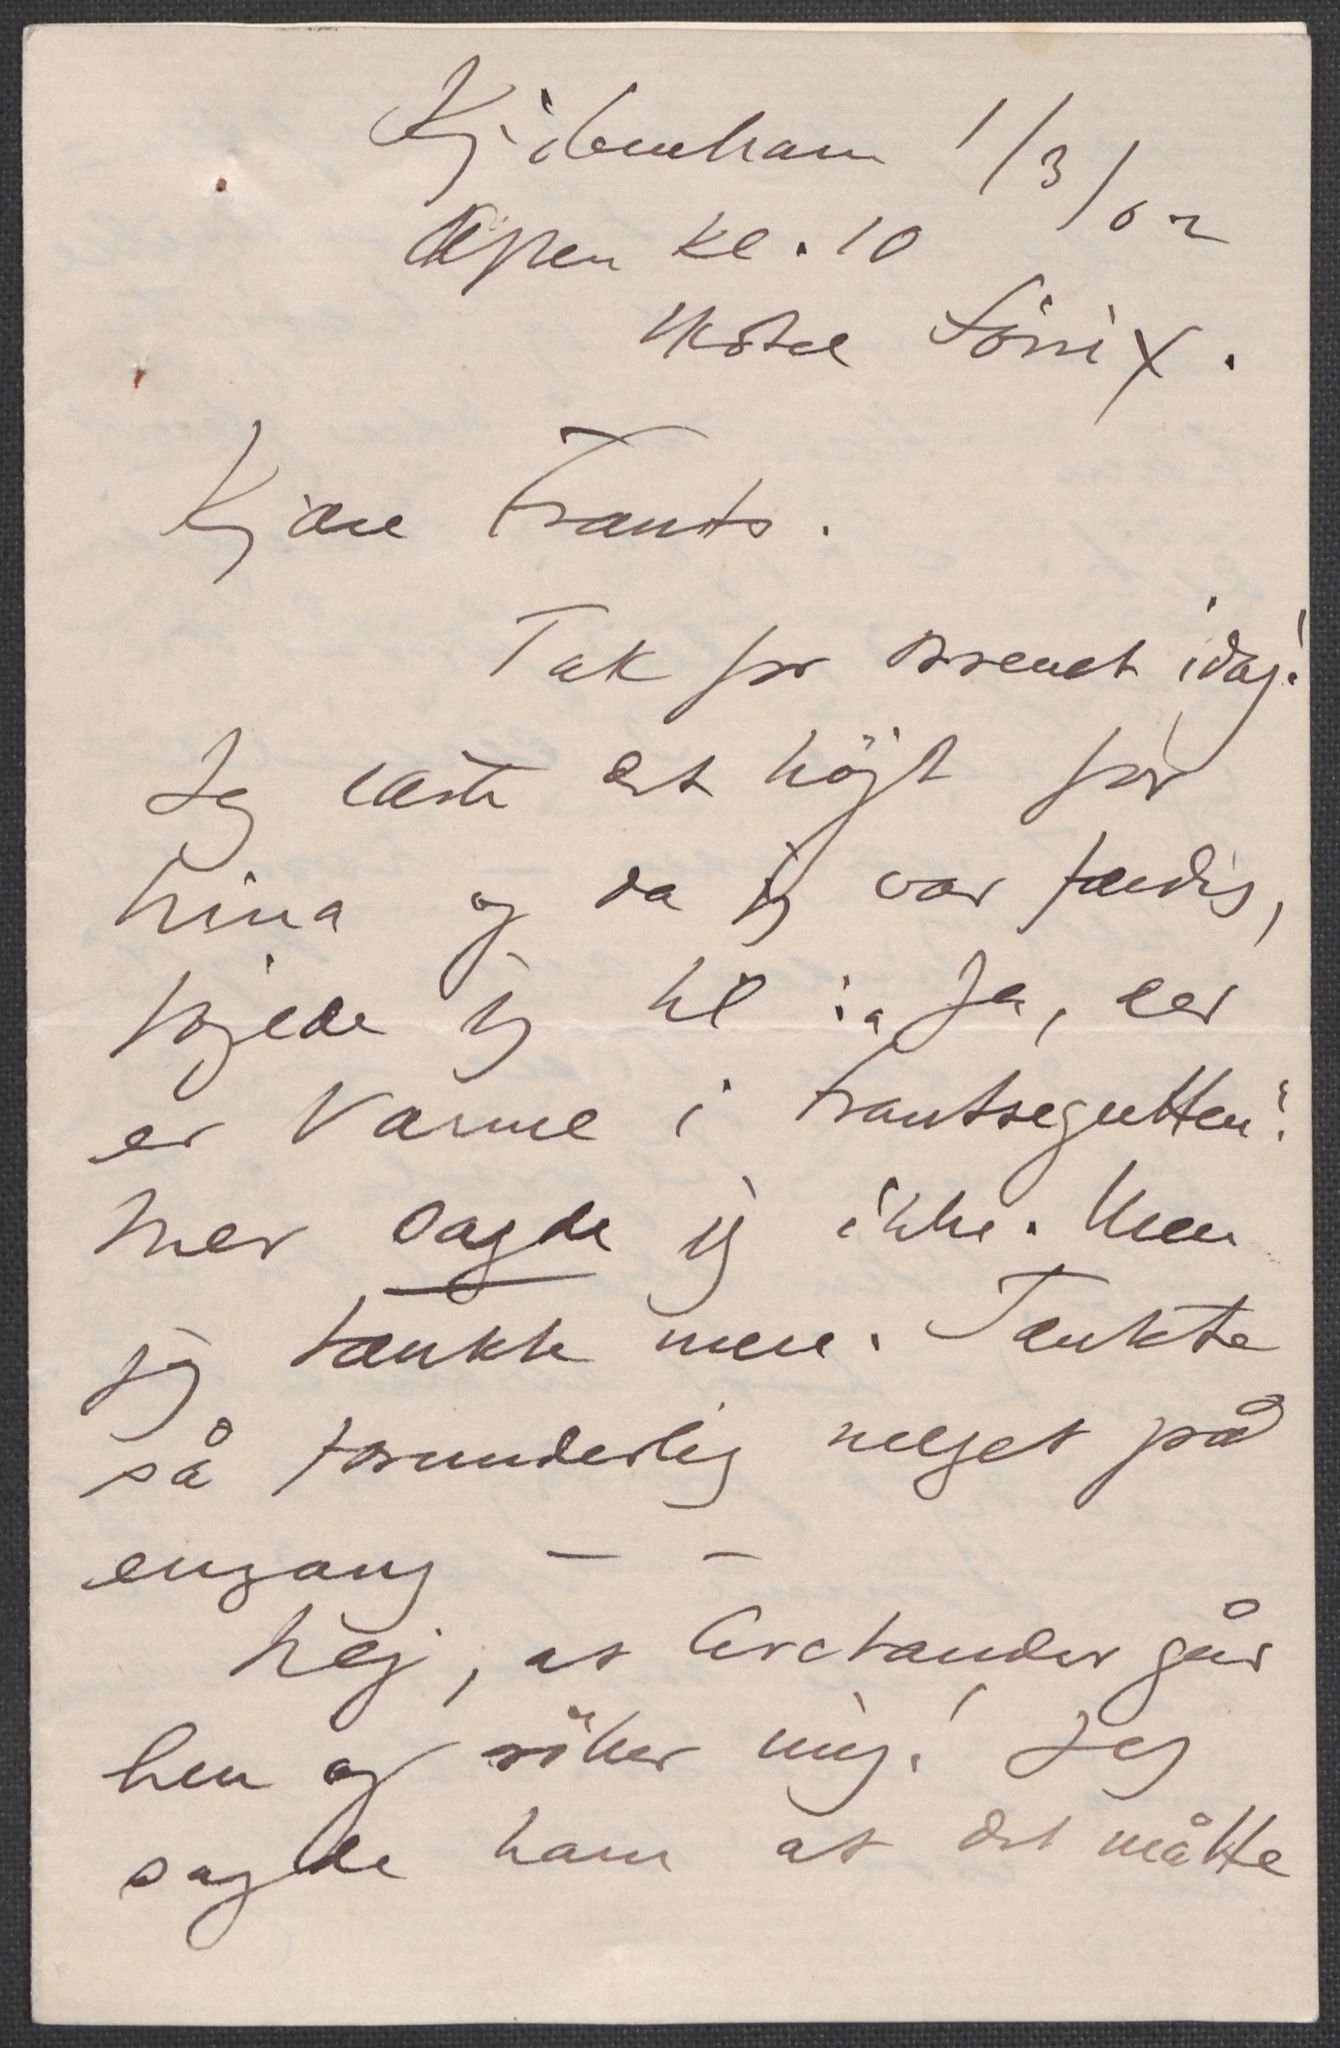 Kjöbenhavn 1/3/02
Aften kl. 10
Hotel Fönix.
Kjære Frants.
Tak for Brevet idag!
Jeg læste det højt for
Nina og da jeg var færdig,
föjede jeg til: „Ja, der
er Varme i Frantsegutten“!
Mer sagde jeg ikke. Men
jeg tænkte mere. Tænkte
så forunderlig meget på
engang — —
Nej, at Arctander går
hen og röber mig! Jeg
sagde ham at det måtte